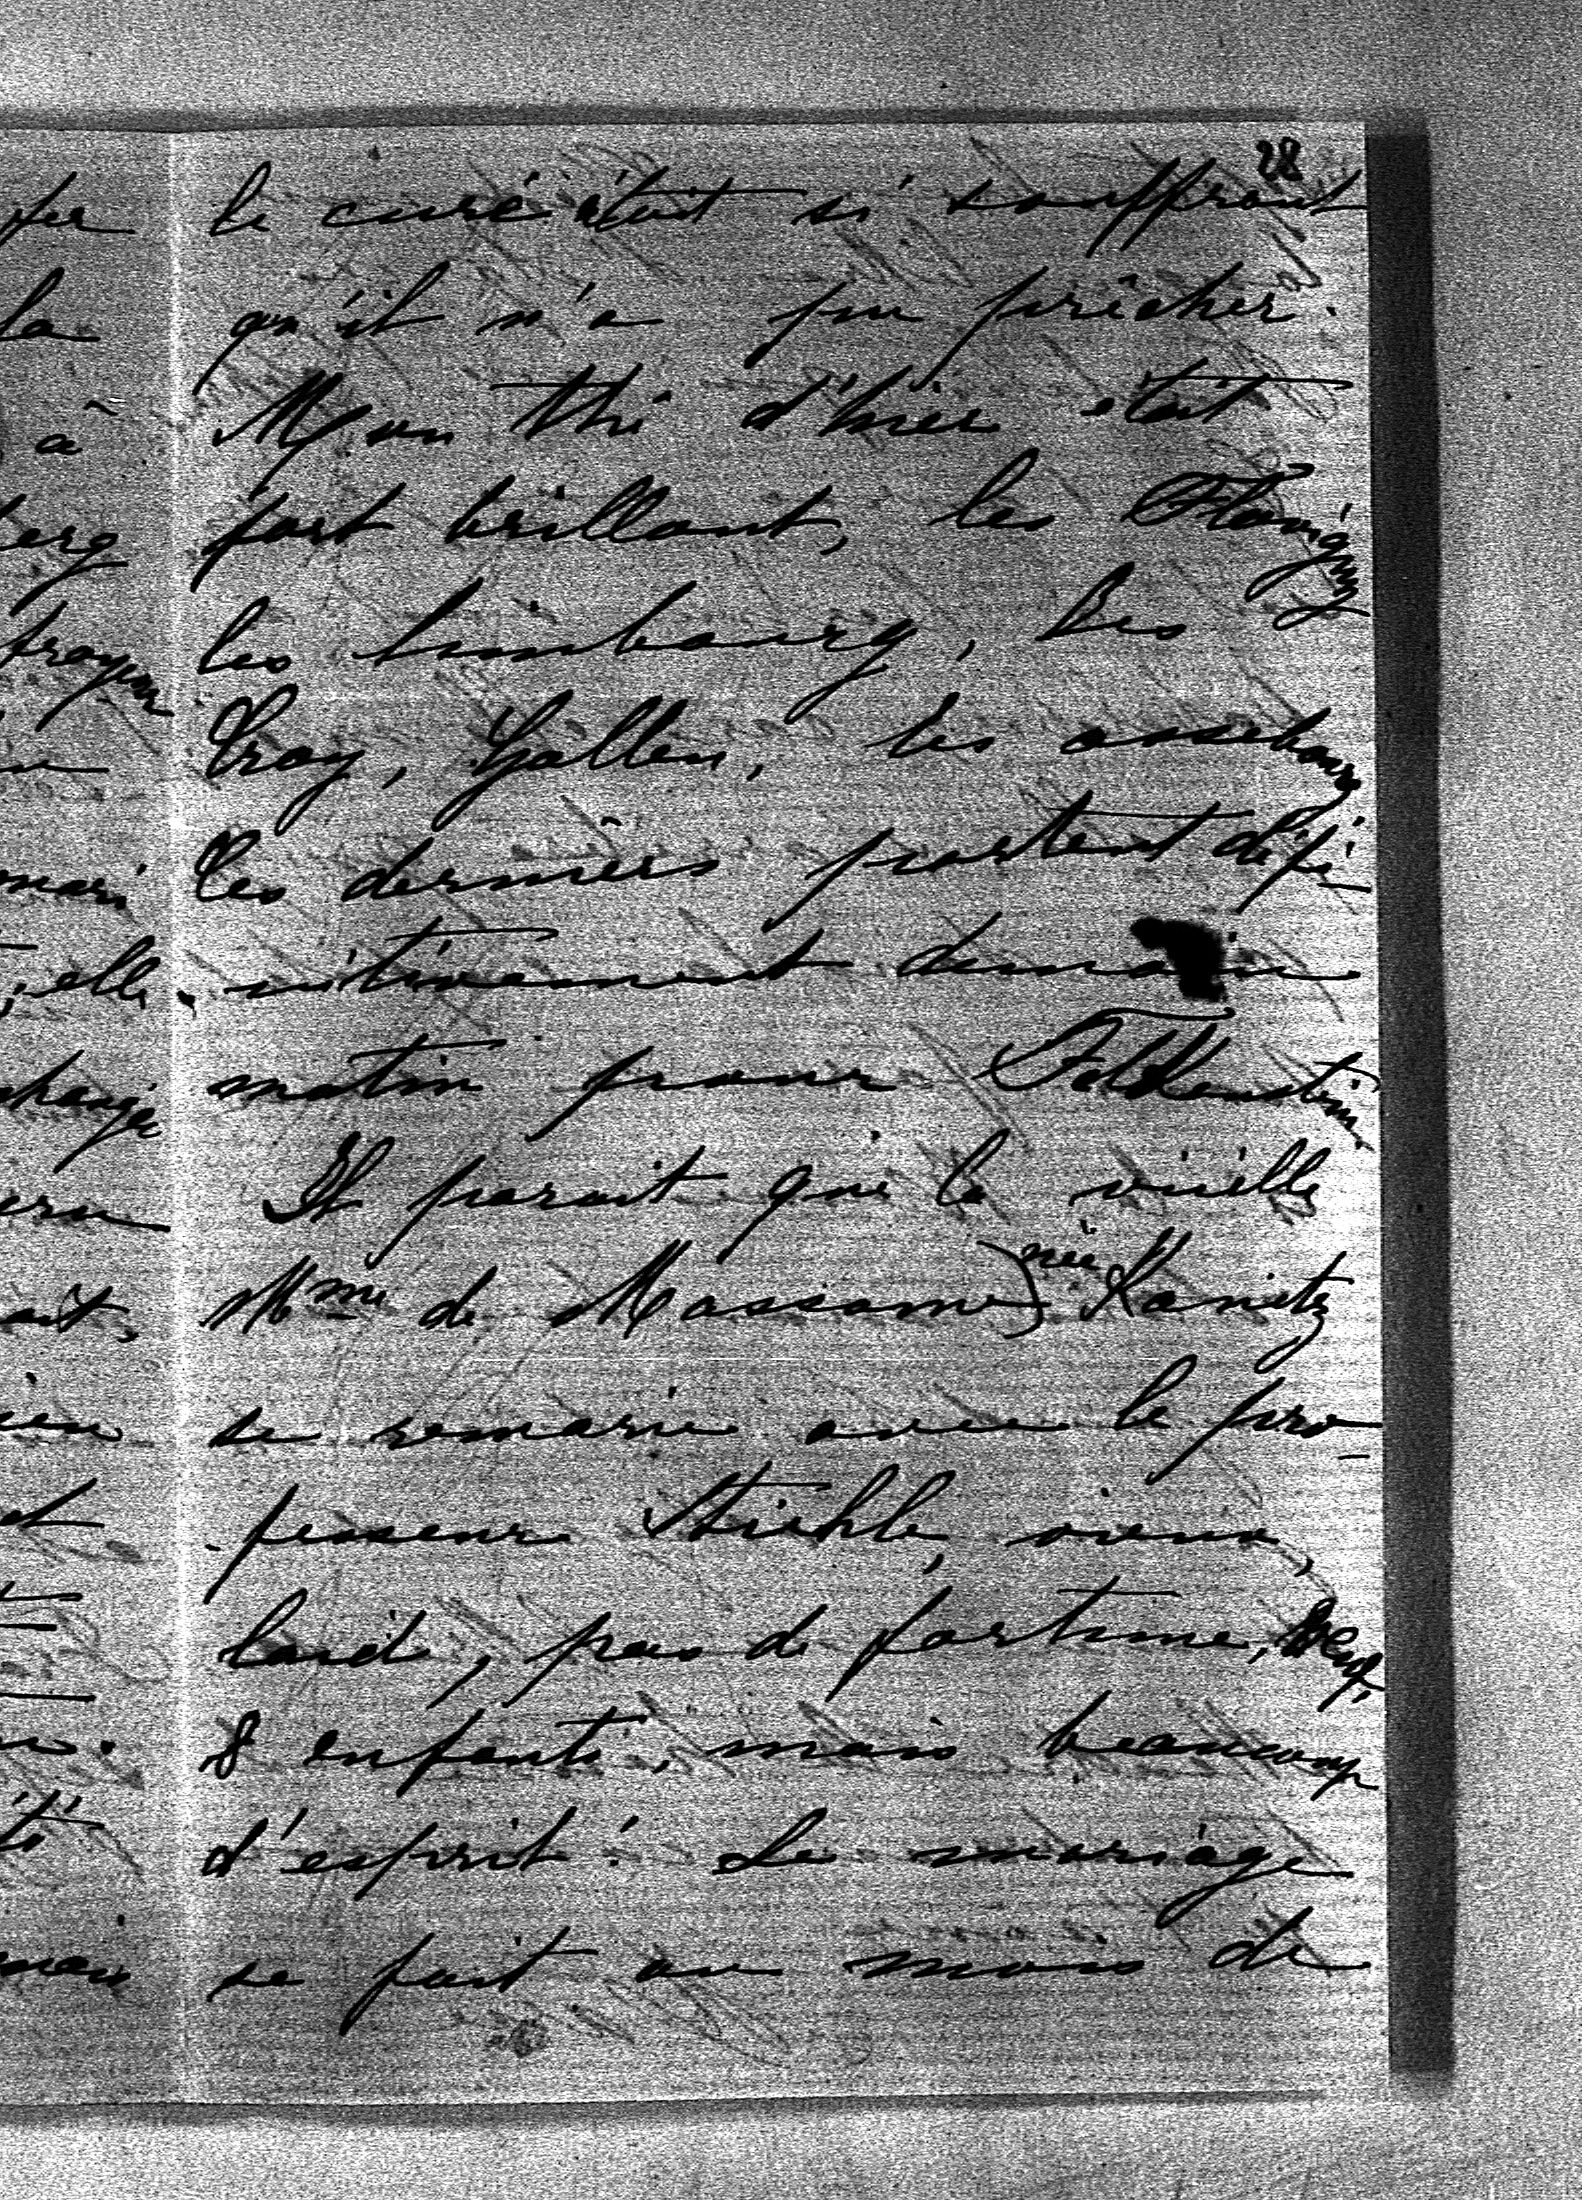 28
fer le curé était si souffrant
la qu'il n'a pu prêcher.
à Mon thé d'hier était
berg fort brillant, les Flavigny
les Limbourg, les
Croy, Galen, les Assebourg
mari Les derniers partent défi-
elle nitivement demain
changée matin pour Falkenstein.
Il parait que la vieille
Mme de Massow) née Kanitz
se remarie avec le pro-
et fesseur Stiehle, vieux,
laid, pas de fortune, veuf,
8 enfants, mais beaucoup
d'esprit! Le mariage
mais se fait au mois de